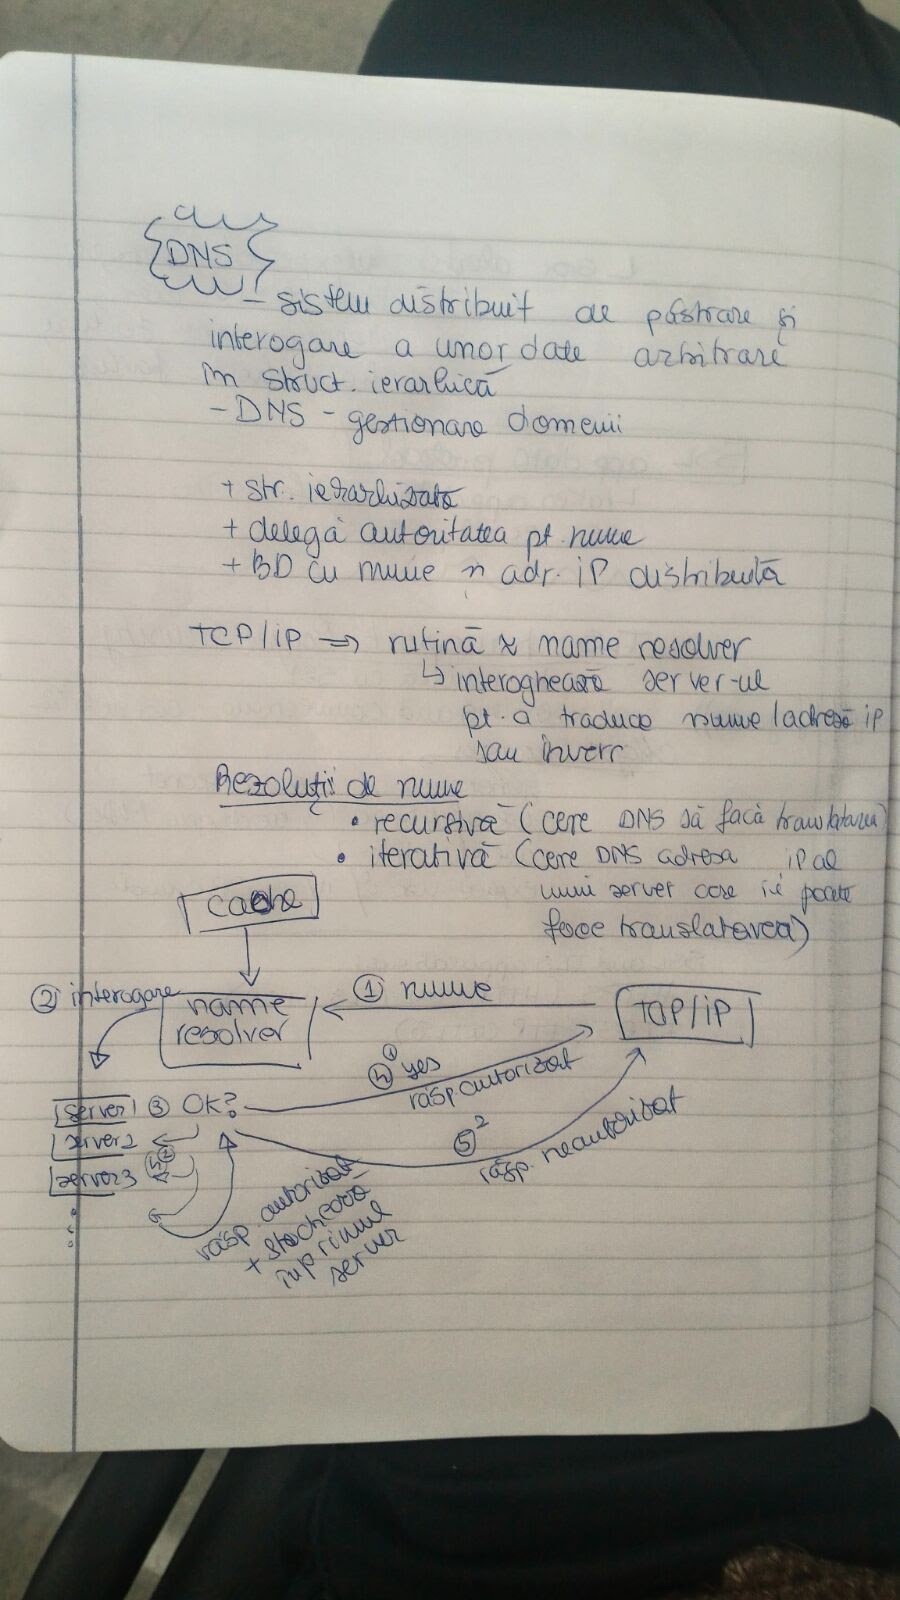 DNS
- sistem distribuit de păstrare și
interogare a unor date arbitrare
în struct. ierarhică
- DNS - gestionare domenii
+ str. ierarhizată
+ delegă autoritatea pt. nume
+ BD cu nume și adr. IP distribuită
TCP/IP => rutină name resolver
↳ interoghează server-ul
pt. a traduce nume/adresă IP
sau invers
Rezoluții de nume
• recursivă (cere DNS să facă translatarea)
• iterativă (cere DNS adresa IP al
unui server care i-l poate
face translatarea)
cache
② interogare
name
resolver
① nume
TCP/IP
4¹ yes
răsp autorizat
server1 ③ OK?
server2
4²
server3
5²
răsp. neautorizat
răsp. autorizat
+ stochează
în primul
server